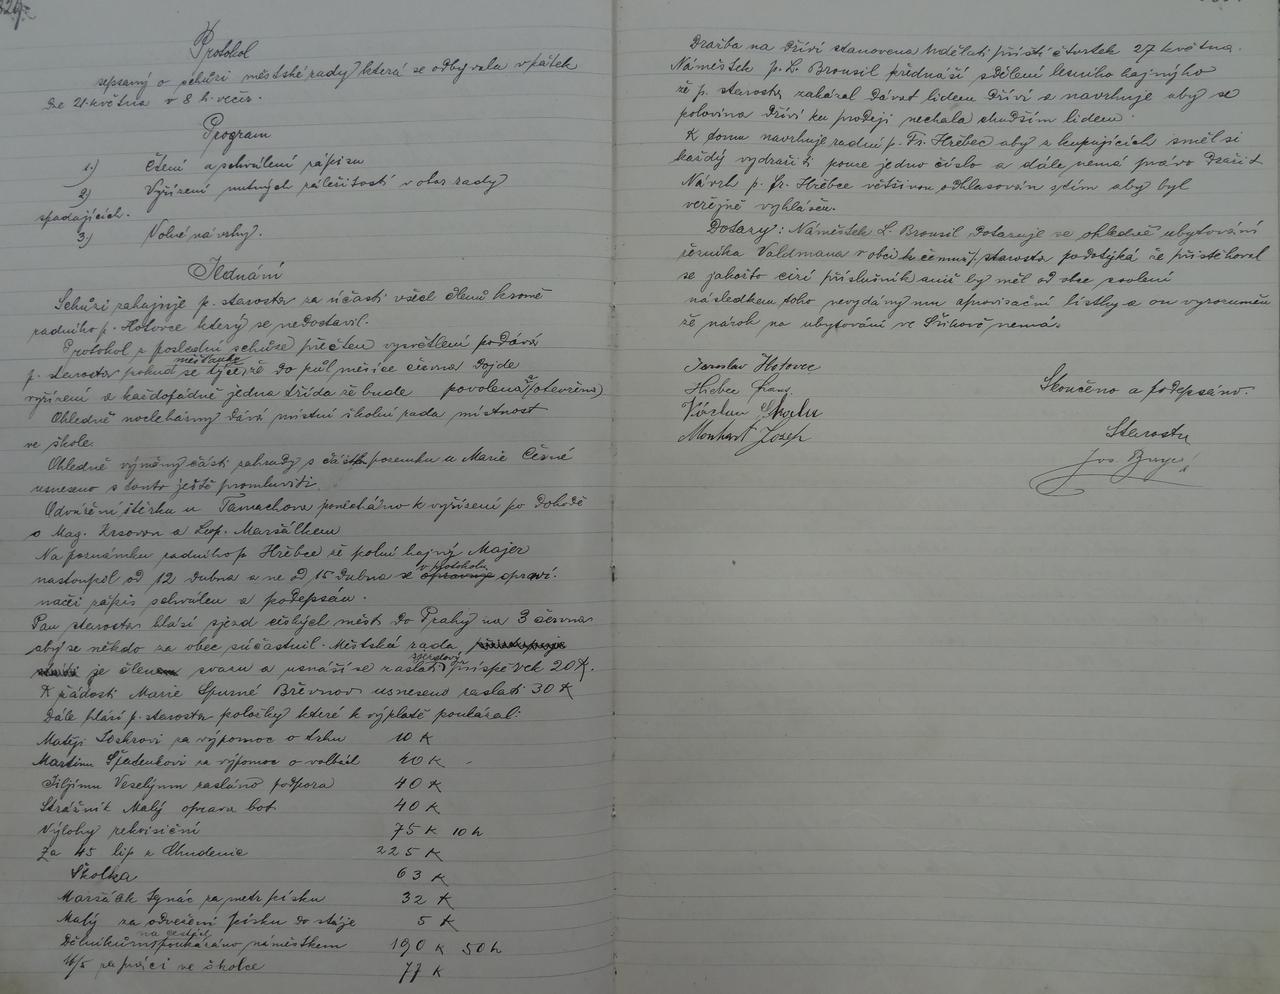 Protokol
sepsaný o schůzi městské rady která se odbyvala v pátek
dne 21. května v 8 h. večer.
Program
1.) Čtení a schválení zápisu
2) Vyřízení nutných záležitostí v obor rady
spadajících.
3.) Volné návrhy.
Jednání
Schůzi zahajuje p. starosta za účasti všech členů kromě
radního p. Hotovce který se nedostavil.
Protokol z poslední schůze přečten vysvětlení podává
p. starosta pokud se měšťanky týče, že do půl měsíce června dojde
vyřízení a každopádně jedna třída že bude povolena a otevřena
Ohledně noclehárny dává místní školní rada místnost
ve škole.
Ohledně výměny části zahrady s částí pozemku u Marie Černé
usneseno s touto ještě promluviti.
Odvážení štěrku u Tomachova ponecháno k vyřízení po dohodě
s Mag. Krsovou a Leop. Maršálkem
Na poznámku radního p Hřebce že polní hajný Majer
nastoupil od 12 dubna a ne od 15 dubna se v protokolu opraví.
načež zápis schválen a podepsán.
Pan starosta hlásí sjezd českých měst do Prahy na 3 června
aby se někdo za obec súčastnil. Městská rada
je členem svazu a usnáší se zaslati sjezdový příspěvek 20 K.
K žádosti Marie Spurné Břevnov usneseno zaslati 30 K
Dále hlásí p. starosta položky které k výplatě poukázal:
Matěji za výpomoc o trhu 10 K
Martinu Špadenkovi za výpomoc o volbách 40 K
Jiljímu Veselýmu zasláno podpora 40 K
Strážník Malý oprava bot 40 K
Výlohy rekvisiční 75 K 10 h
Za 45 lip z Chudenic 225 K
Školka 63 K
Maršálek Ignác za metr písku 32 K
Malý za odvežení písku do stáje 5 K
Dělníkům na cestách poukázáno náměstkem 190 K 50 h
16/5 za práci ve školce 77 K
Dražba na dříví stanovena udělati příští čtvrtek 27 května.
Náměstek p. L. Brousil přednáší sdělení lesního hajného
že p. starosta zakázal dávat lidem dříví a navrhuje aby se
polovina dříví ku prodeji nechala chudším lidem.
K tomu navrhuje radní p. Fr. Hřebec aby z kupujících směl si
každý vydražiti pouze jedno číslo a dále nemá právo dražit
Návrh p. Fr. Hřebce většinou odhlasován s tím aby byl
veřejně vyhlášen.
Dotazy: Náměstek L. Brousil dotazuje se ohledně ubytování
Valdmana v obci k čemuž starosta podotýká že přistěhoval
se jakožto cizí příslušník aniž by měl od obce svolení
následkem toho nevydány mu aprovisační lístky a on vyrozuměn
že nárok na ubytování ve nemá.
Jaroslav Hotovec
Hřebec Franc.
Václav
Monhart Jozef
Skončeno a podepsáno.
Starosta
Jos.